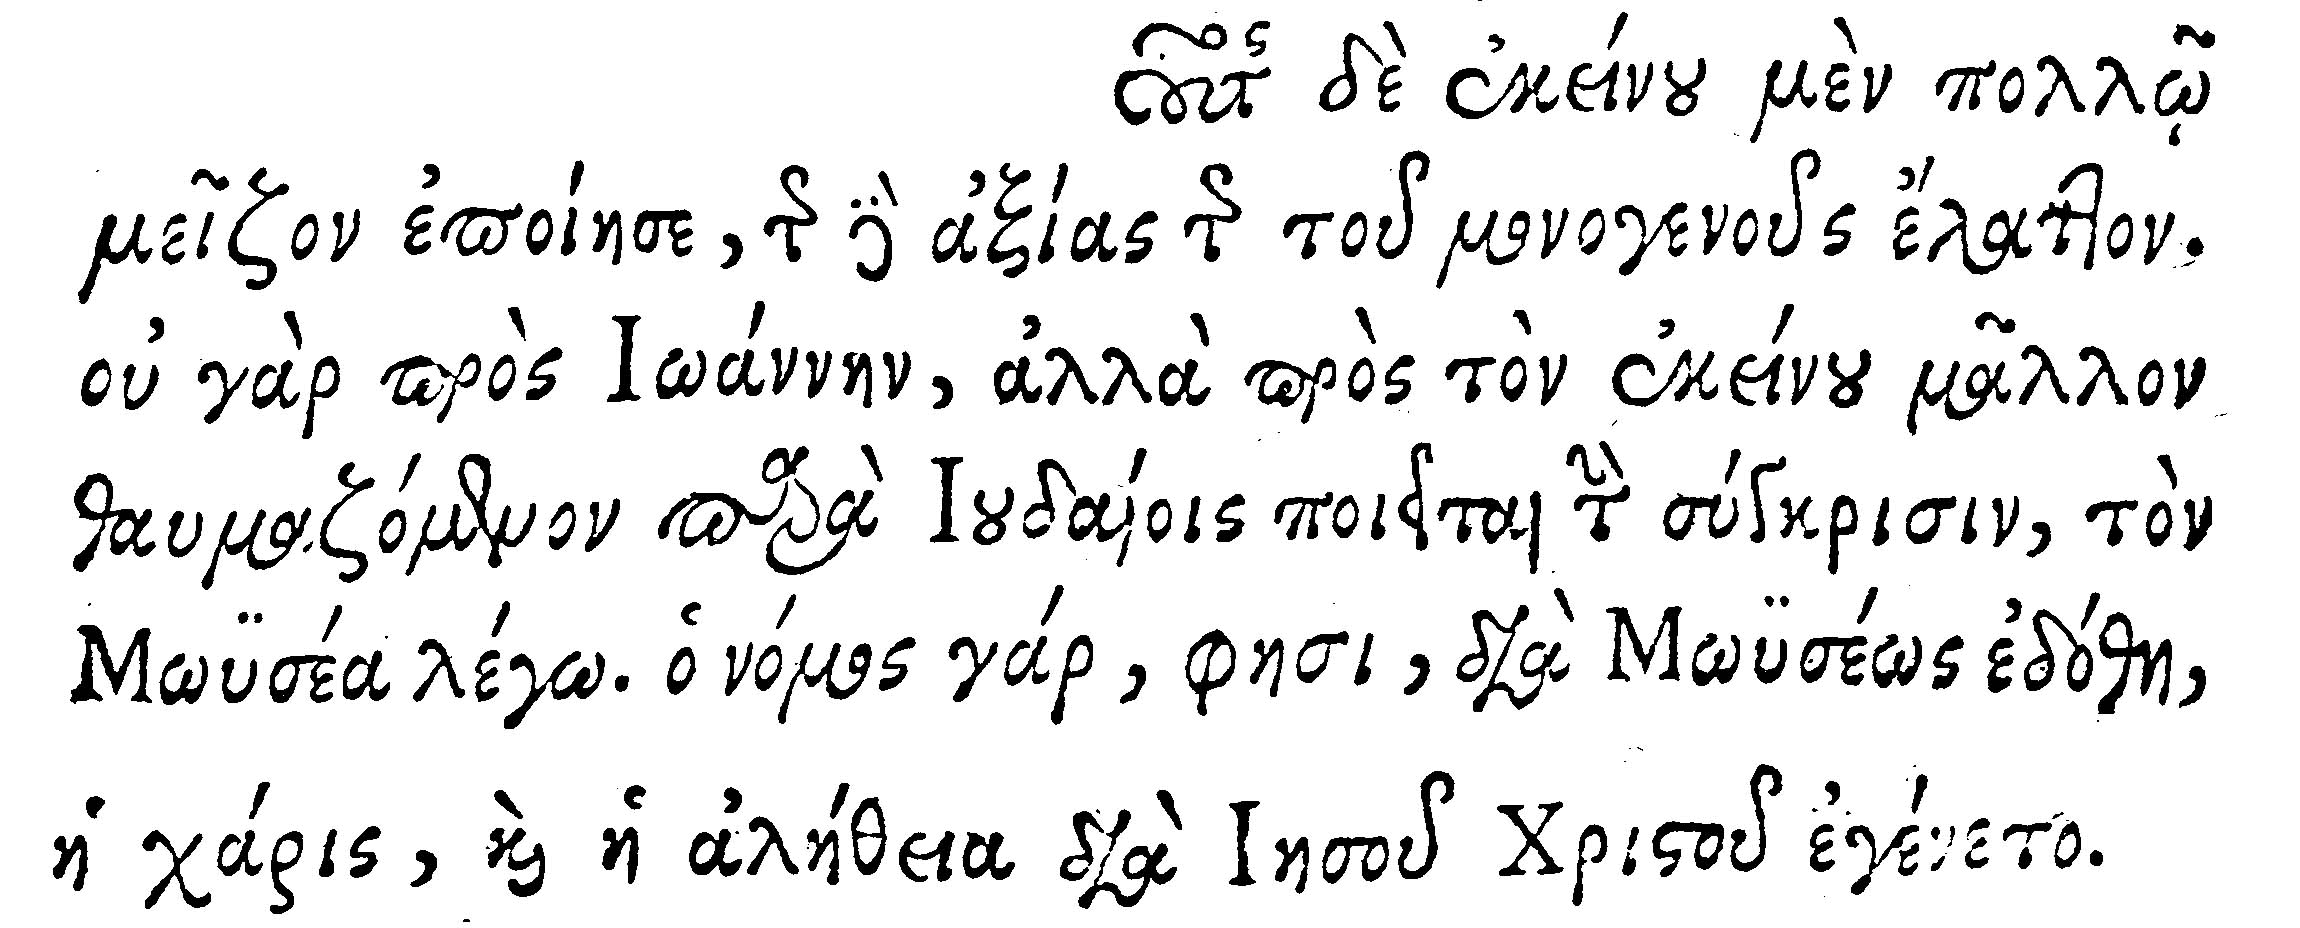 οὗτος δὲ ἐκείνου μὲν πολλῷ
μεῖζον ἐποίησε, τῆς δὲ ἀξίας τῆς τοῦ μονογενοῦς ἔλαττον.
οὐ γὰρ πρὸς Ιωάννην, ἀλλὰ πρὸς τὸν ἐκείνου μᾶλλον
θαυμαζόμενον παρὰ Ιουδαίοις ποιεῖται τὴν σύγκρισιν, τὸν
Μωϋσέα λέγω. ὁ νόμος γάρ, φησι, διὰ Μωϋσέως ἐδόθη,
ἡ χάρις, καὶ ἡ ἀλήθεια διὰ Ιησοῦ Χριστοῦ ἐγένετο.